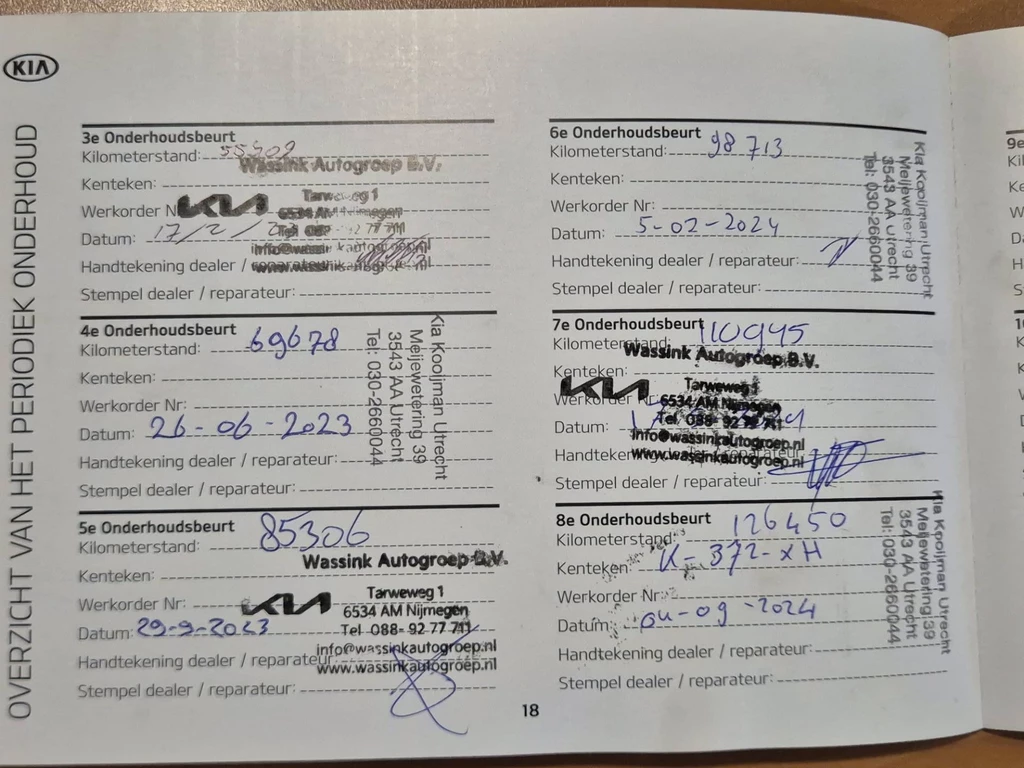 KIA
OVERZICHT VAN HET PERIODIEK ONDERHOUD
3e Onderhoudsbeurt
Kilometerstand: 55909
Wassink Autogroep B.V.
Kenteken:
Tarweweg 1
Werkorder N
KIA
6534 AM Nijmegen
Tel 088- 92 77 711
Datum: 17/2/
info@wassinkautogroep.nl
Handtekening dealer / reparateur:
www.wassinkautogroep.nl
Stempel dealer / reparateur:
4e Onderhoudsbeurt
Kilometerstand: 69678
Kenteken:
Werkorder Nr:
Datum: 26-06-2023
Handtekening dealer / reparateur:
Stempel dealer / reparateur:
Kia Kooijman Utrecht
Meijewetering 39
3543 AA Utrecht
Tel: 030-2660044
5e Onderhoudsbeurt
Kilometerstand: 85306
Wassink Autogroep B.V.
Kenteken:
Tarweweg 1
Werkorder Nr:
KIA
6534 AM Nijmegen
Datum: 29-9-2023
Tel 088- 92 77 711
info@wassinkautogroep.nl
Handtekening dealer / reparateur:
www.wassinkautogroep.nl
Stempel dealer / reparateur:
6e Onderhoudsbeurt
Kilometerstand: 98713
Kenteken:
Werkorder Nr:
Datum: 5-02-2024
Handtekening dealer / reparateur:
Stempel dealer / reparateur:
Kia Kooijman Utrecht
Meijewetering 39
3543 AA Utrecht
Tel: 030-2660044
7e Onderhoudsbeurt
Kilometerstand: 110945
Wassink Autogroep B.V.
Kenteken:
Tarweweg 1
KIA
Werkorder Nr
6534 AM Nijmegen
Datum:
Tel 088- 92 77 711
info@wassinkautogroep.nl
Handtekening dealer / reparateur
www.wassinkautogroep.nl
Stempel dealer / reparateur:
8e Onderhoudsbeurt
Kilometerstand: 126450
Kenteken: K-372-XH
Werkorder Nr:
Datum: -09-2024
Handtekening dealer / reparateur:
Stempel dealer / reparateur:
Kia Kooijman Utrecht
Meijewetering 39
3543 AA Utrecht
Tel: 030-2660044
18
9e